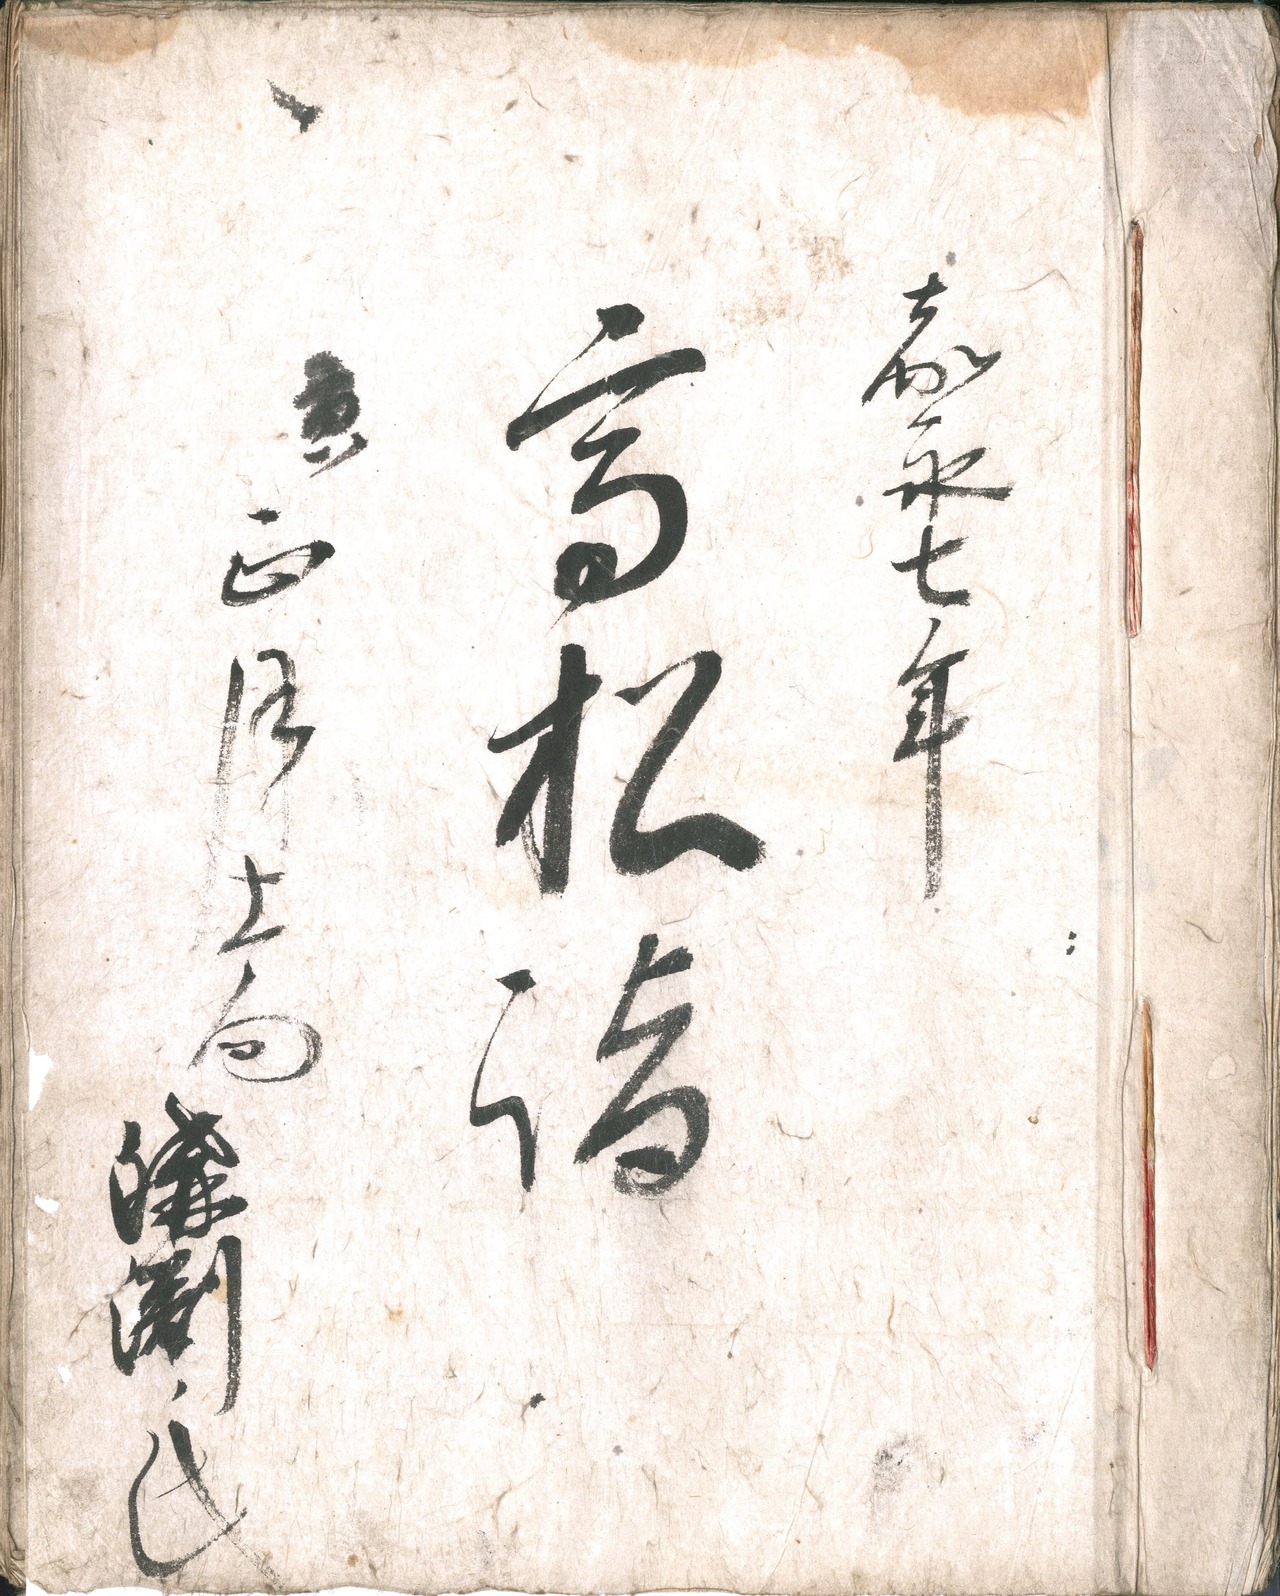 嘉永七年
高松詣
寅正月上旬
勝渕氏